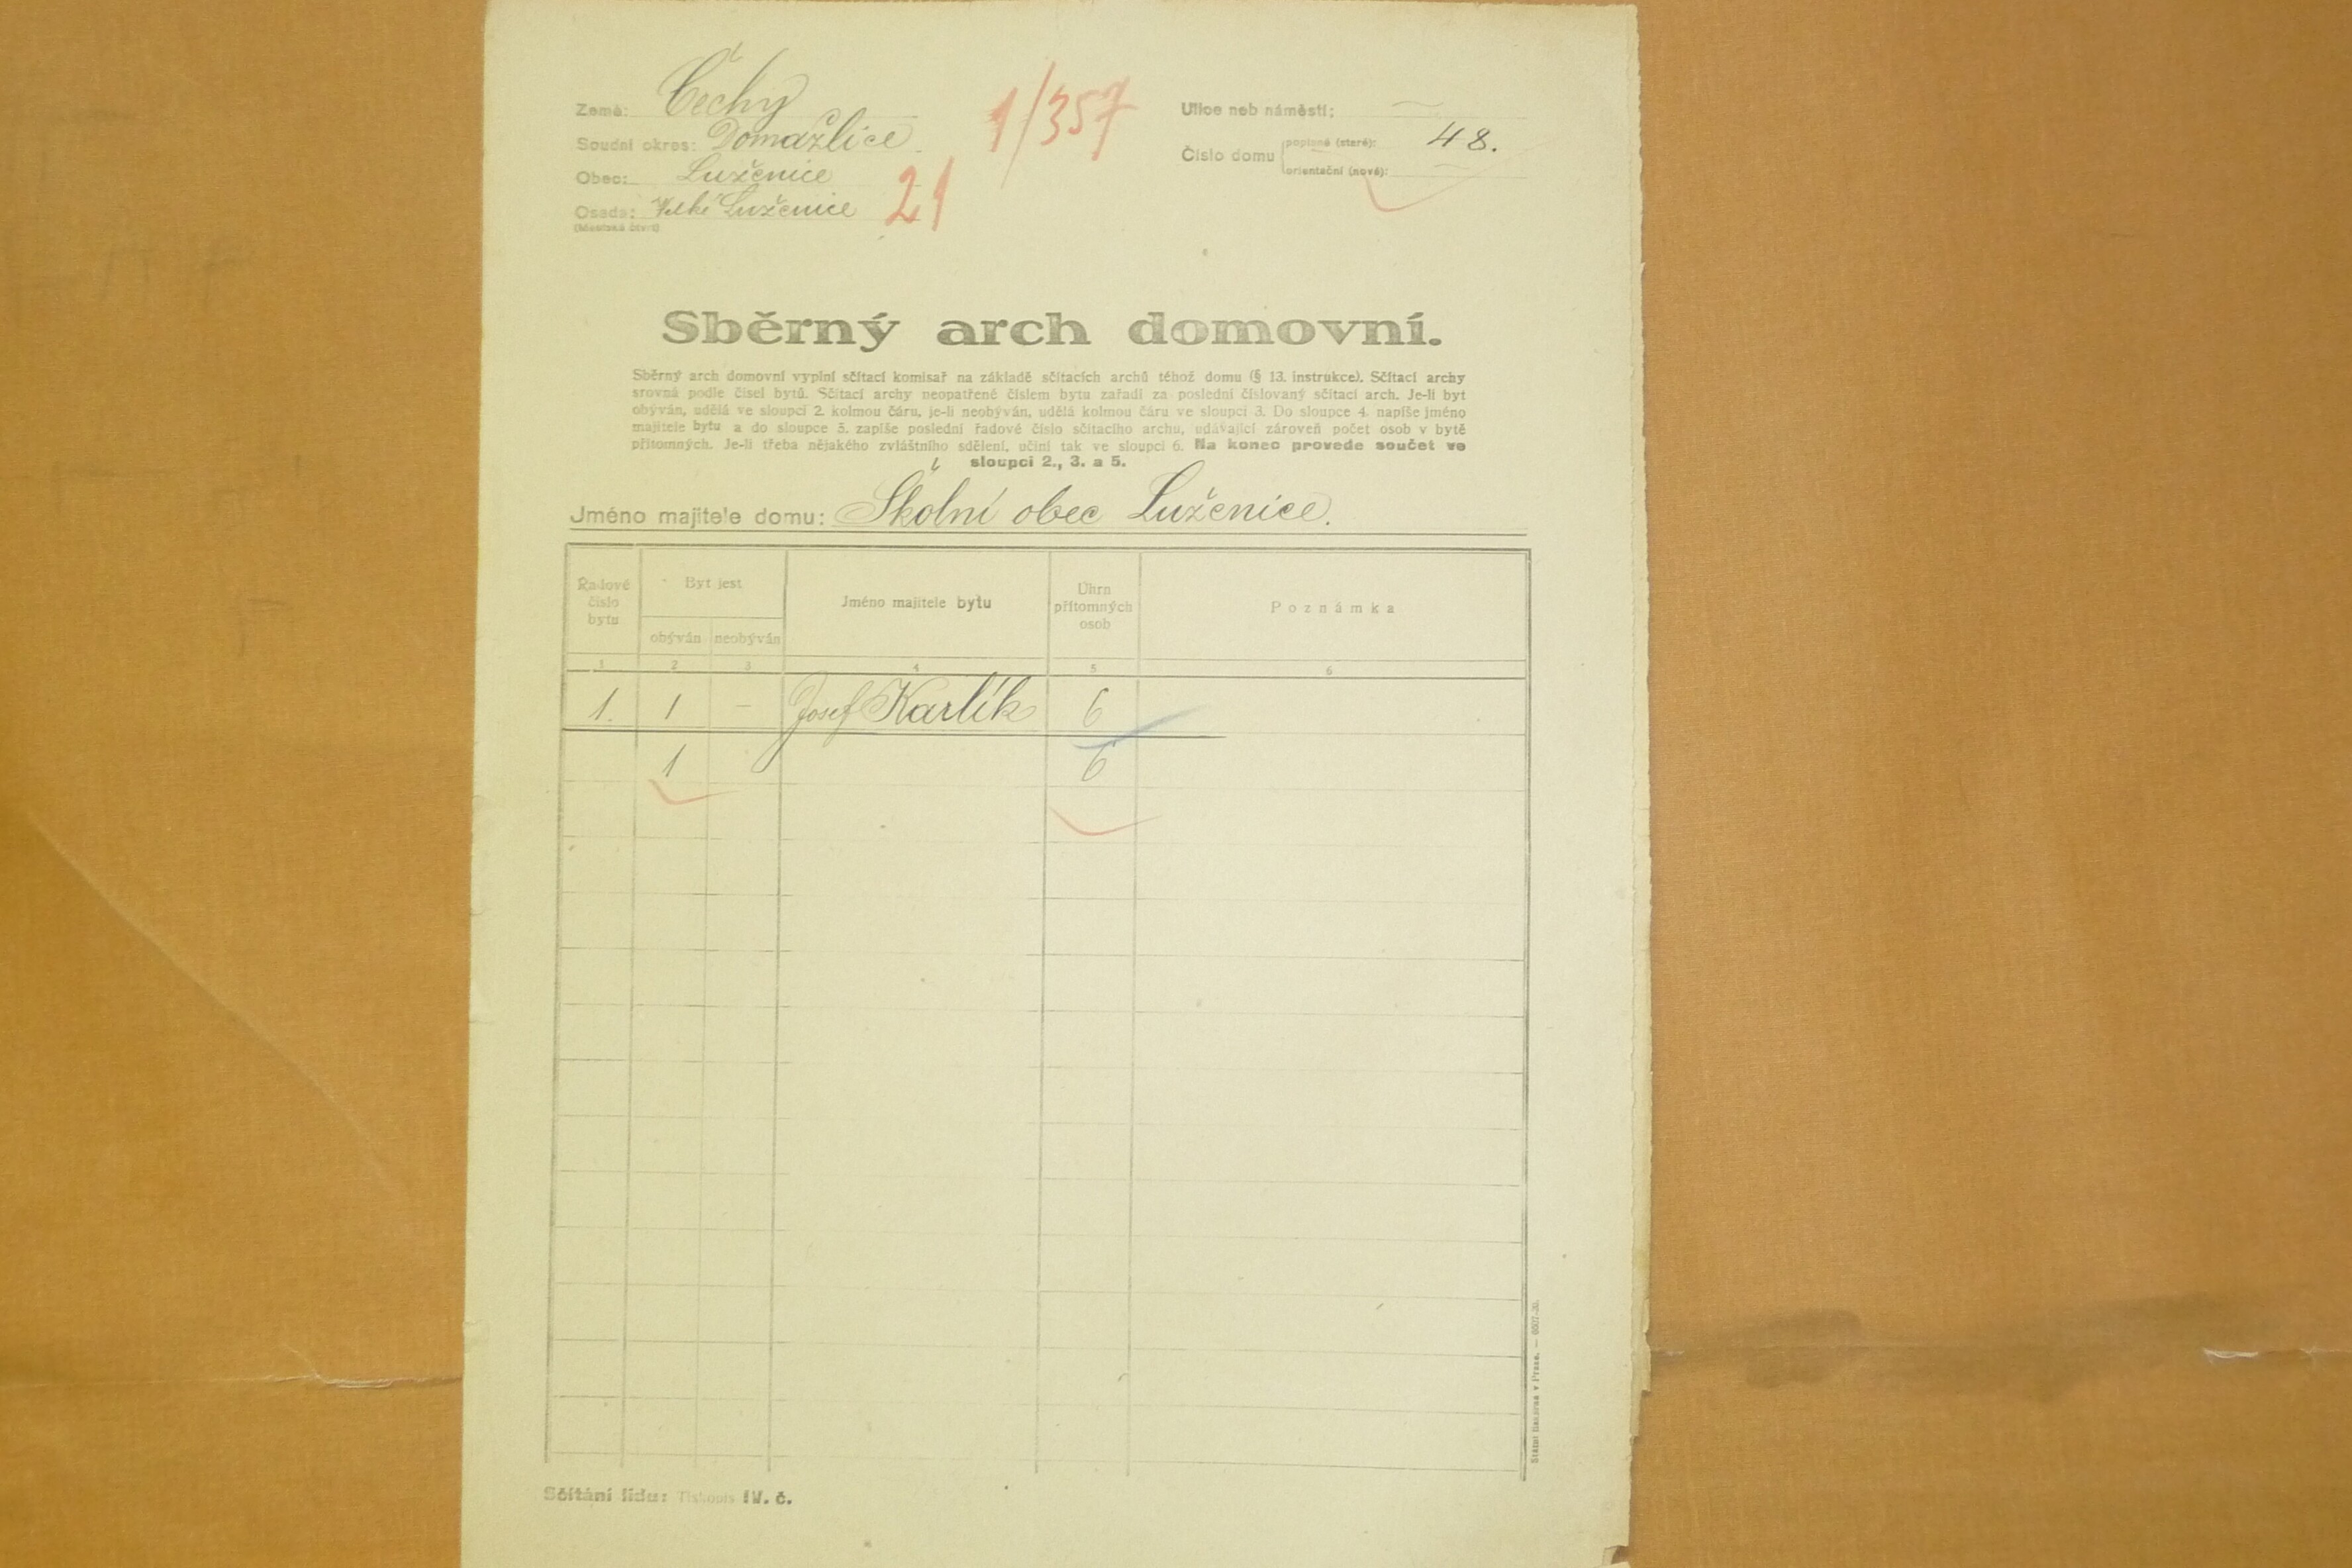 Země: Čechy
Soudní okres: Domažlice.
Obec: Luženice
Osada: Velké Luženice
(Městská čtvrť)
1/357
21
Ulice neb náměstí: —
Číslo domu
popisné (staré): 48.
orientační (nové): —
Sběrný arch domovní.
Sběrný arch domovní vyplní sčítací komisař na základě sčítacích archů téhož domu (§ 13. instrukce). Sčítací archy
srovná podle čísel bytů. Sčítací archy neopatřené číslem bytu zařadí za poslední číslovaný sčítací arch. Je-li byt
obýván, udělá ve sloupci 2. kolmou čáru, je-li neobýván, udělá kolmou čáru ve sloupci 3. Do sloupce 4. napíše jméno
majitele bytu a do sloupce 5. zapíše poslední řadové číslo sčítacího archu, udávající zároveň počet osob v bytě
přítomných. Je-li třeba nějakého zvláštního sdělení, učiní tak ve sloupci 6. Na konec provede součet ve
sloupci 2., 3. a 5.
Jméno majitele domu: Školní obec Luženice.
Řadové
číslo
bytu
Byt jest
obýván neobýván
Jméno majitele bytu
Úhrn
přítomných
osob
Poznámka
1 2 3 4 5 6
1. 1 — Josef Karlík 6
1 6
Sčítání lidu: Tiskopis IV. č.
Státní tiskárna v Praze. — 6007-30.